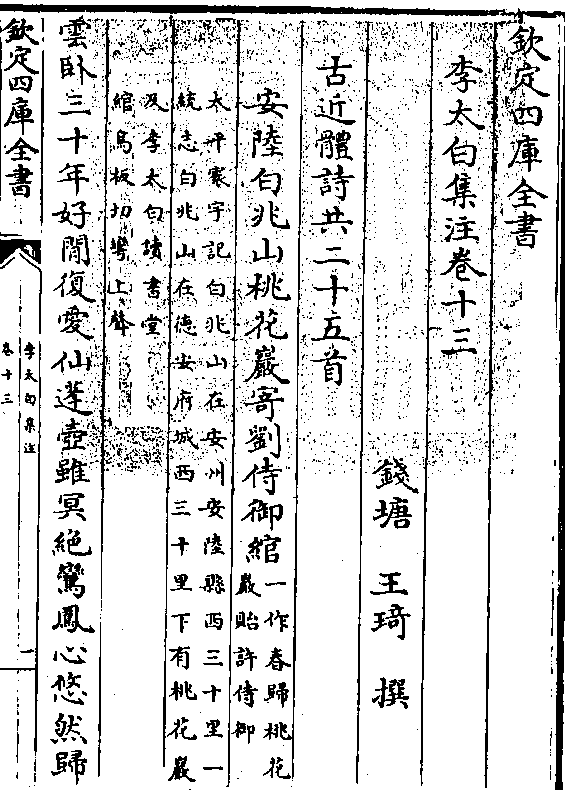 欽定四庫全書
李太白集注卷十三
錢塘 王琦 撰
古近體詩共二十五首
安陸白兆山桃花巖寄劉侍御綰一作春歸桃花
巖貽許侍御
太平寰宇記白兆山在安州安陸縣西三十里一
統志白兆山在德安府城西三十里下有桃花巖
及李太白讀書堂
綰烏板切彎上聲
雲臥三十年好閒復愛仙蓬壺雖冥絶鸞鳳心悠然歸
欽定四庫全書
李太白集注
卷十三
一